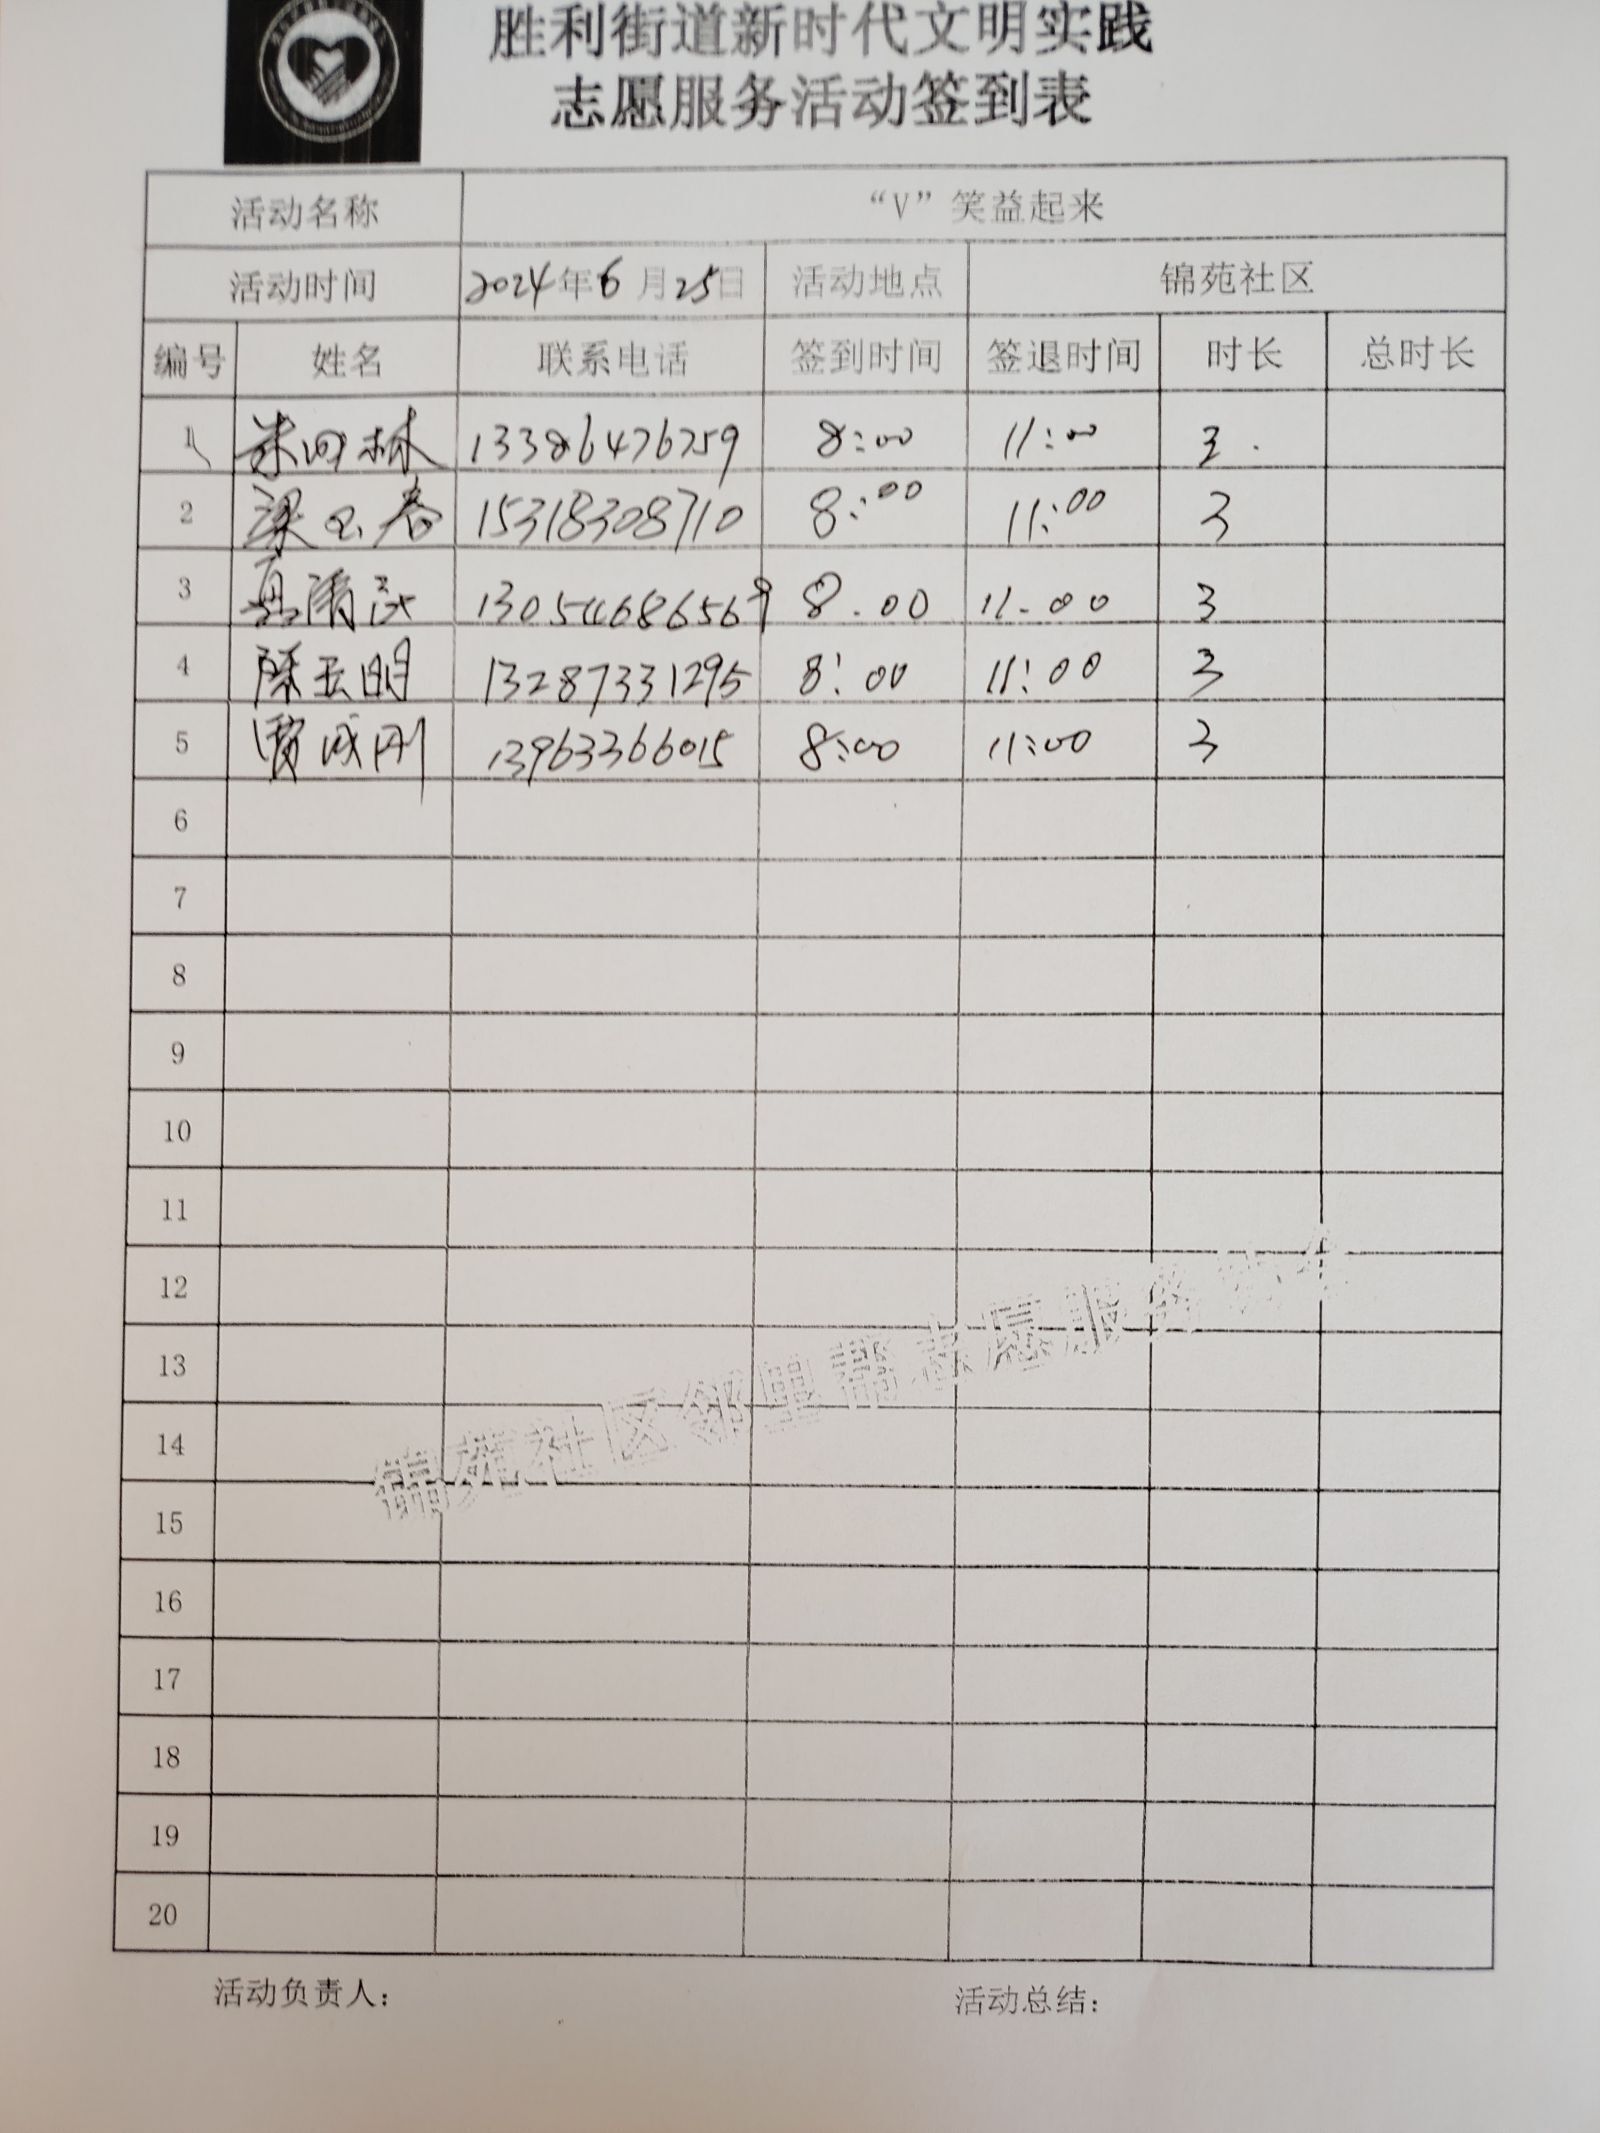 胜利街道新时代文明实践
志愿服务活动签到表
活动名称 “V”笑益起来
活动时间 2024年6月25日 活动地点 锦苑社区
编号 姓名 联系电话 签到时间 签退时间 时长 总时长
1 朱四林 13386476759 8:00 11:00 3
2 梁玉春 15318308710 8:00 11:00 3
3 13054686569 8.00 11-00 3
4 陈玉明 13287331295 8:00 11:00 3
5 贾成刚 13963366015 8:00 11:00 3
6
7
8
9
10
11
12
13
14
15
16
17
18
19
20
锦苑社区邻里帮志愿服务
活动负责人： 活动总结：